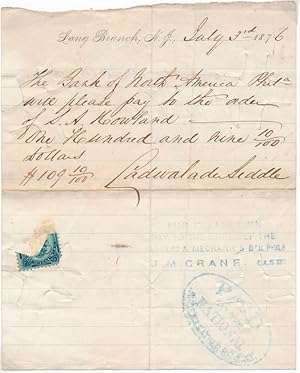 Long Branch, N.J., July 3rd 1876
The Bank of North America Phila
will please pay to the order
of S. A. Rowland
One Hundred and nine 10/100
dollars
$109 10/100 Cadwalader Biddle
OF THE
& MECHANICS B'K. PHILA
J. M. CRANE, CAS
PAID
NATIONAL